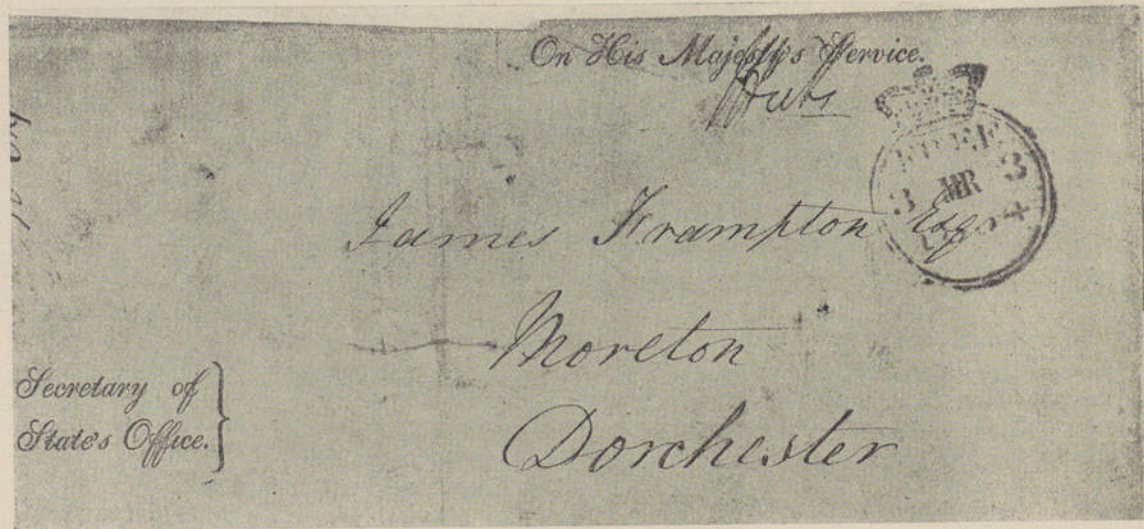 On His Majesty's Service.
FREE
3 MR 3
James Frampton Esq
Moreton
Dorchester
Secretary of
State's Office.